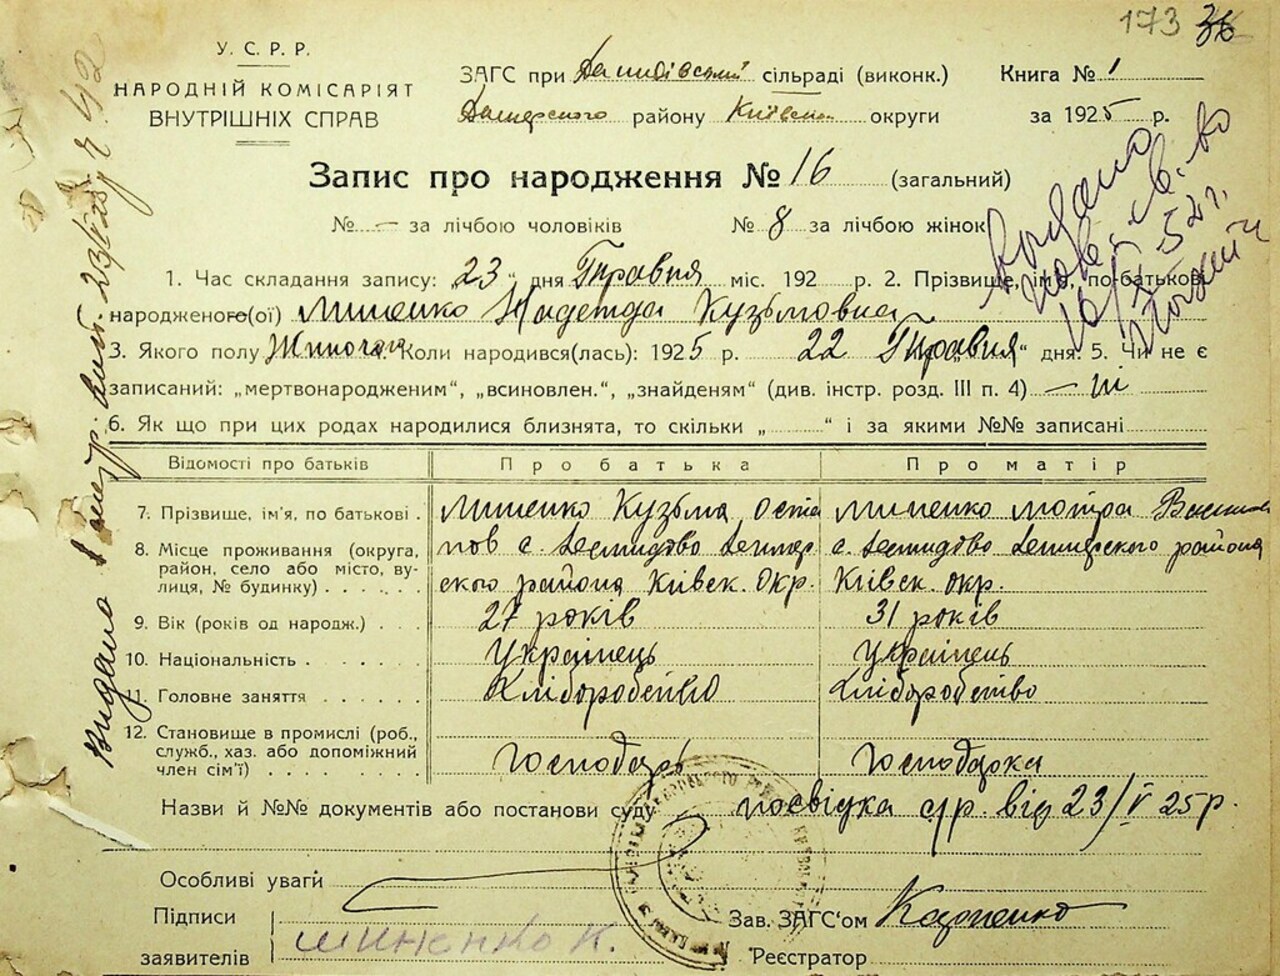 173 36
У. С. Р. Р.
НАРОДНІЙ КОМІСАРІЯТ
ВНУТРІШНІХ СПРАВ
ЗАГС при сільраді (виконк.) Книга № 1
району округи за 1925 р.
Запис про народження № 16 (загальний)
№ — за лічбою чоловіків № 8 за лічбою жінок
1. Час складання запису: „23“ дня Травня міс. 192 р. 2. Прізвище, ім'я, по-батькові
народженого(ої) Миненко Надежда Кузьмовна
3. Якого полу Коли народився(лась): 1925 р. 22 Травня “ дня. 5. Чи не є
записаний: „мертвонародженим“, „всиновлен.“, „знайденям“ (див. інстр. розд. III п. 4) — ні
6. Як що при цих родах народилися близнята, то скільки „ “ і за якими №№ записані
Відомості про батьків Про батька Про матір
7. Прізвище, ім'я, по батькові Миненко Кузьма Оста Миненко Мотра
8. Місце проживання (округа,
район, село або місто, ву-
лиця, № будинку)
пов с. с. района
ского района Київск. Окр. Київск. окр.
9. Вік (років од народж.) 27 років 31 років
10. Національність Українець Українець
11. Головне заняття Хліборобство Хліборобство
12. Становище в промислі (роб.,
служб., хаз. або допоміжний
член сім'ї) Господарь Господарка
Назви й №№ документів або постанови суду посвідка с/р. від 23/V 25 р.
Особливі уваги
Підписи
заявителів Миненко К.
Зав. ЗАГС'ом
Реєстратор
Видано 23/V 25 р.
Видано